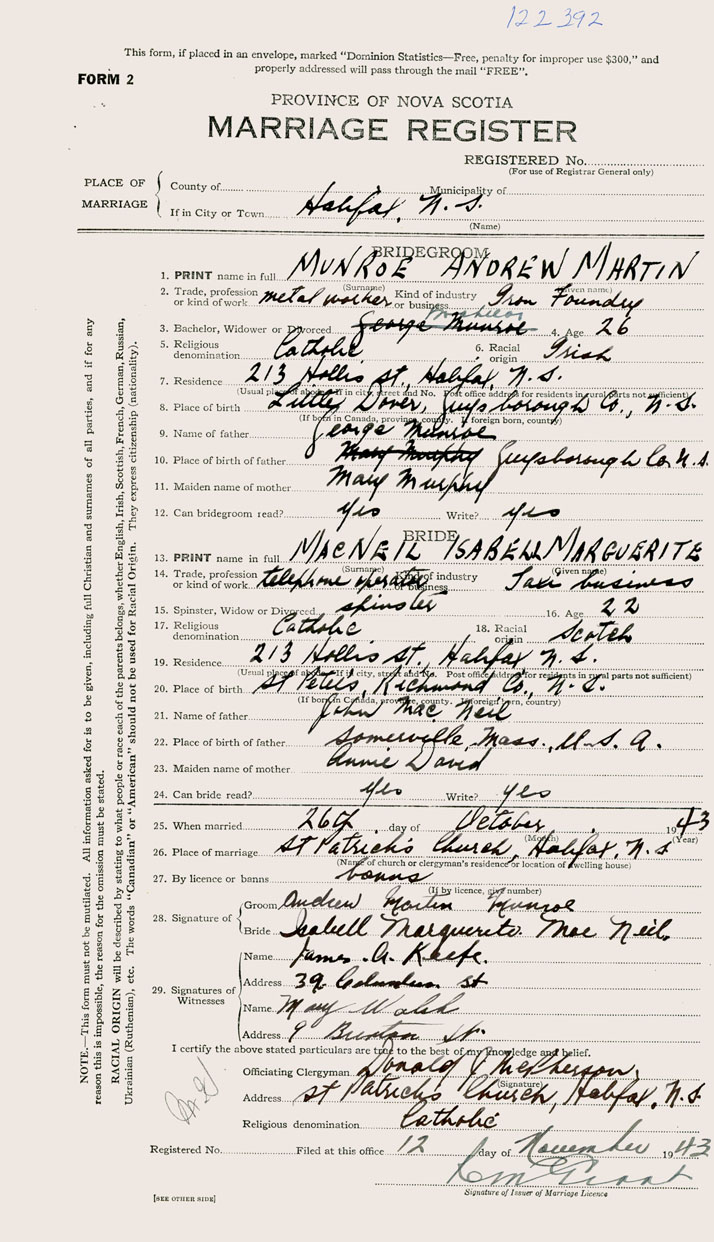 122392
This form, if placed in an envelope, marked "Dominion Statistics—Free, penalty for improper use $300," and
properly addressed will pass through the mail "FREE".
FORM 2
PROVINCE OF NOVA SCOTIA
MARRIAGE REGISTER
REGISTERED No.
(For use of Registrar General only)
PLACE OF MARRIAGE
County of Municipality of
If in City or Town Halifax, N. S.
(Name)
BRIDEGROOM
1. PRINT name in full MUNROE ANDREW MARTIN
(Surname) (Given name)
2. Trade, profession or kind of work metal worker Kind of industry or business Iron Foundry
3. Bachelor, Widower or Divorced George Munroe Bachelor 4. Age 26
5. Religious denomination Catholic 6. Racial origin Irish
7. Residence 213 Hollis St., Halifax, N.S.
(Usual place of abode. If in city, street and No. Post office address for residents in rural parts not sufficient)
8. Place of birth Little Dover, Guysborough Co., N.S.
(If born in Canada, province, county. If foreign born, country)
9. Name of father George Munroe
10. Place of birth of father Mary Murphy Guysborough Co. N.S.
11. Maiden name of mother Mary Murphy
12. Can bridegroom read? yes Write? yes
BRIDE
13. PRINT name in full MACNEIL ISABELL MARGUERITE
(Surname) (Given name)
14. Trade, profession or kind of work telephone operator Kind of industry or business Taxi business
15. Spinster, Widow or Divorced spinster 16. Age 22
17. Religious denomination Catholic 18. Racial origin Scotch
19. Residence 213 Hollis St., Halifax N. S.
(Usual place of abode. If in city, street and No. Post office address for residents in rural parts not sufficient)
20. Place of birth St Peters, Richmond Co., N. S.
(If born in Canada, province, county. If foreign born, country)
21. Name of father John Mac Neil
22. Place of birth of father Somerville, Mass., U. S. A.
23. Maiden name of mother Annie David
24. Can bride read? yes Write? yes
25. When married 26th day of October 1943
(Month) (Year)
26. Place of marriage St Patrick's Church, Halifax, N.S
(Name of church or clergyman's residence or location of dwelling house)
27. By licence or banns banns
(If by licence, give number)
28. Signature of
Groom Andrew Martin Munroe
Bride Isabell Marguerite Mac Neil
29. Signatures of Witnesses
Name James A. Keefe.
Address 39 Columbus St
Name Mary Walsh
Address 9 St.
I certify the above stated particulars are true to the best of my knowledge and belief.
Officiating Clergyman Donald McPherson
(Signature)
Address St Patrick's Church, Halifax, N.S
Religious denomination Catholic
Registered No. Filed at this office 12 day of November 1943
Signature of Issuer of Marriage Licence
[SEE OTHER SIDE]
NOTE.—This form must not be mutilated. All information asked for is to be given, including full Christian and surnames of all parties, and if for any
reason this is impossible, the reason for the omission must be stated.
RACIAL ORIGIN will be described by stating to what people or race each of the parents belongs, whether English, Irish, Scottish, French, German, Russian,
Ukrainian (Ruthenian), etc. The words "Canadian" or "American" should not be used for Racial Origin. They express citizenship (nationality).